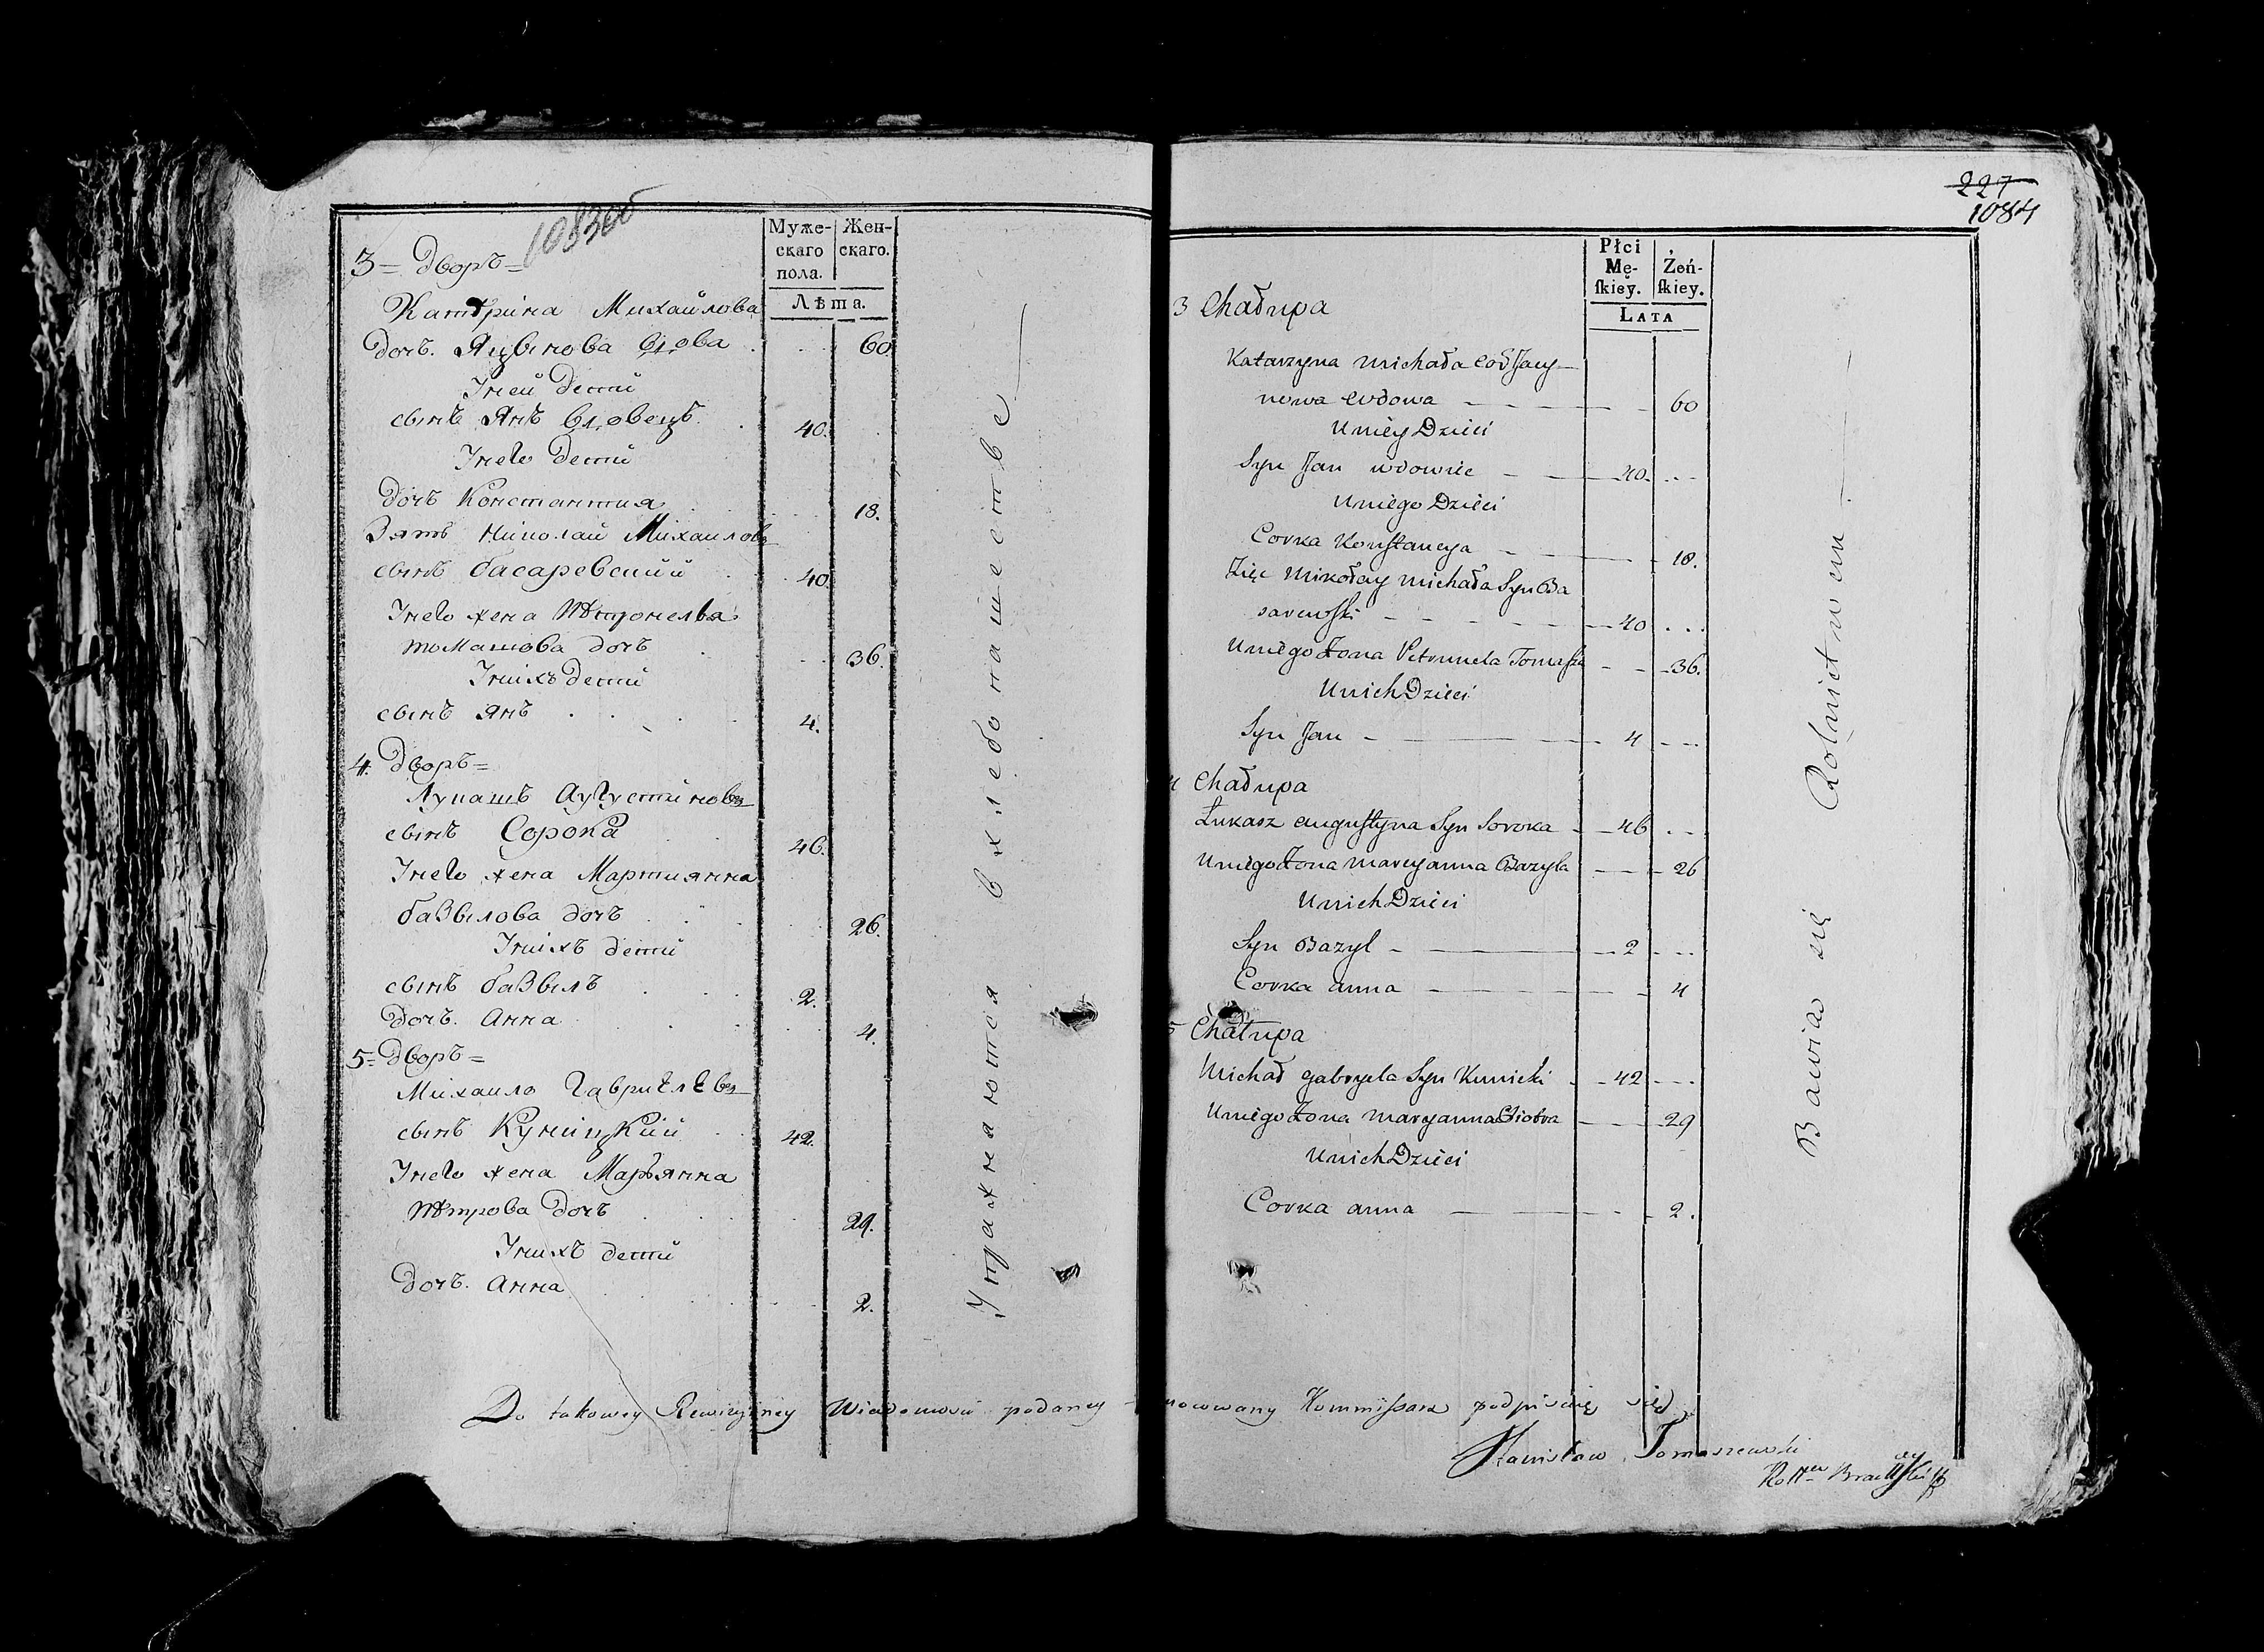 1083об
Муже-
скаго
пола.
Жен-
скаго.
Лѣта.
3 = Дворъ =
Катрина Михайлова
дочь. Яцынова вдова . . . 60
Унеи дети
сынъ Янъ вдовецъ . 40.
Унего дети
дочь Константия . . . 18.
Зять Николай Михаилова
сынъ басаревский . 40.
Унего жена Петронеля
томашова дочь . . . 36.
Унихъ дети
сынъ Янъ . . . . 4.
4. Дворъ =
Лукашъ Аугустинова
сынъ Сорока . 46.
Унего жена Мартианна
базылова дочь . . . 26.
Унихъ дети
сынъ базылъ . . . 2.
дочь. Анна . . . 4.
5 = Дворъ =
Михаило Гавриелева
сынъ Куницкий . 42.
Унего жена Марьянна
Петрова дочь . . . 29.
Унихъ дети
дочь. Анна . . . 2.
Упражняются в хлебопашестве
227
1084
Płci
Mę-
skiey.
Żeń-
skiey.
LATA
3 Chałupa
Katarzyna Michała Cor Jacy-
nowa Wdowa — 60
U niey Dzieci
Syn Jan wdowiec — 40. ...
U niego Dzieci
Corka Konstancya — 18.
Zięć Mikołay Michała Syn Ba
sarewski — 40 ...
U niego Zona Petrunela Tomasza — 36.
U nich Dzieci
Syn Jan — 4 ...
4 Chałupa
Łukasz Augustyna Syn Soroka — 46 ...
U niego Zona Maryanna Bazyla — 26
U nich Dzieci
Syn Bazyl — 2 ...
Corka Anna — 4
5 Chałupa
Michał Gabryela Syn Kunicki — 42 ...
U niego Zona Maryanna Piotra — 29
U nich Dzieci
Corka Anna — 2.
Bawia się Rolnictwem
Do takowey Rewizyiney Wiadomości podaney umocowany Kommissarz podpisuię się
Stanisław Tomaszewski